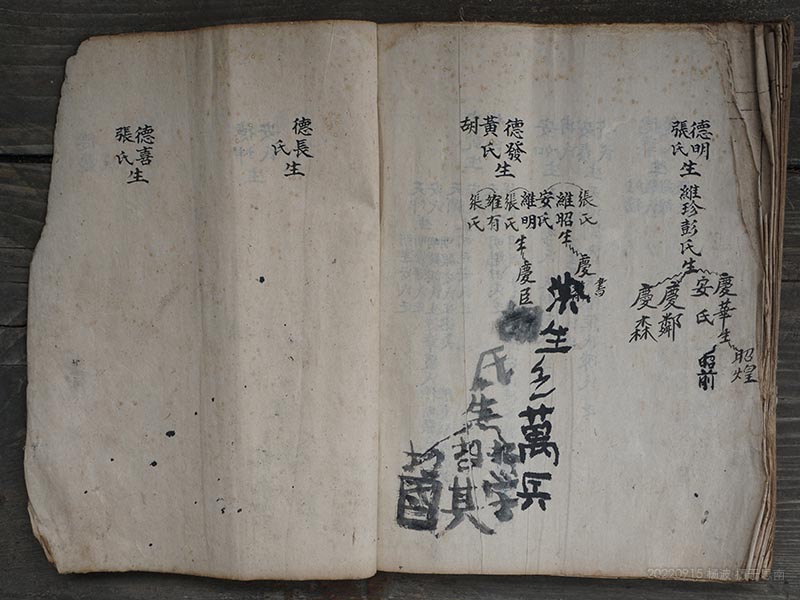 德明
張氏生
維珍彭氏生
慶華生
昭煌
昭前
安氏
慶鄭
慶森
德發
黃氏生
胡
張氏
維昭生
慶
書
安氏
維明生
慶臣
張氏
維有
張氏
生
萬兵
氏生
学
其
國
德長生
氏
德喜生
張氏
20220915 楊波